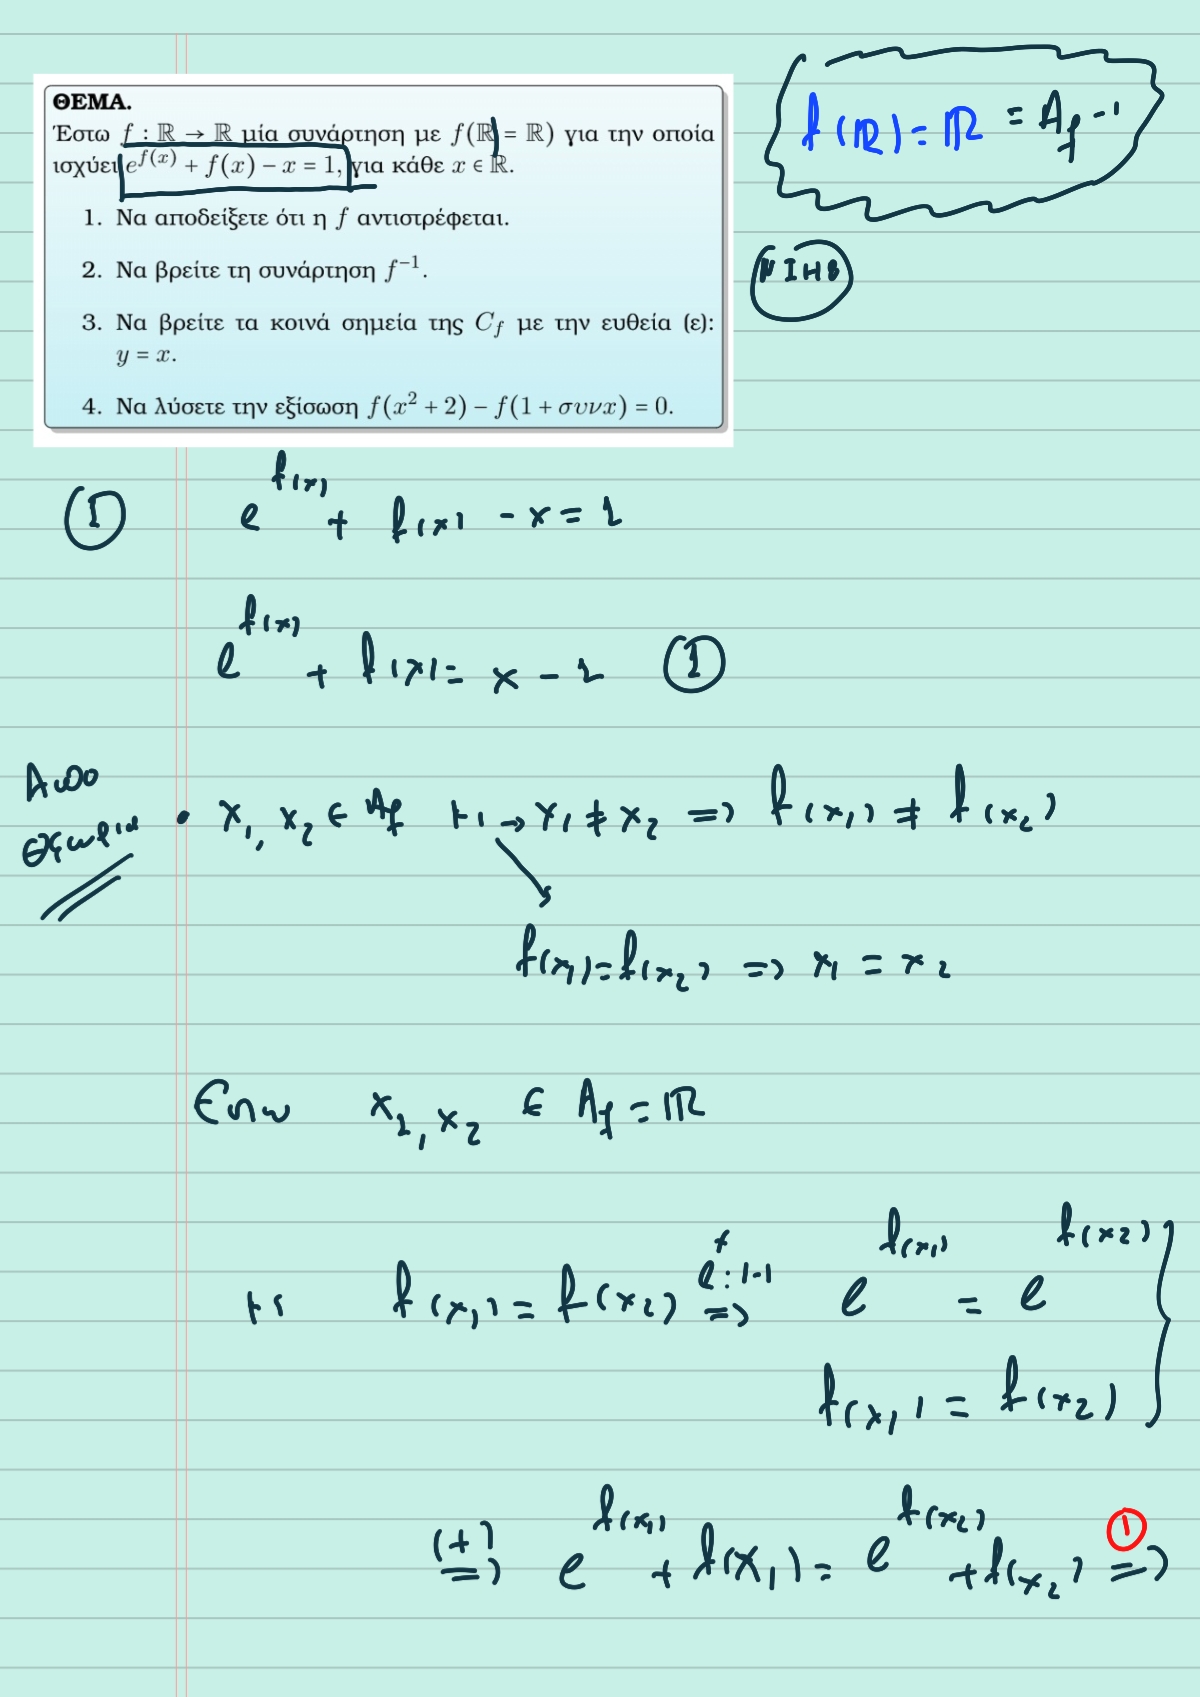 ΘΕΜΑ.
Έστω f : ℝ → ℝ μία συνάρτηση με f(ℝ) = ℝ) για την οποία
ισχύει e^{f(x)} + f(x) − x = 1, για κάθε x ∈ ℝ.
1. Να αποδείξετε ότι η f αντιστρέφεται.
2. Να βρείτε τη συνάρτηση f^{−1}.
3. Να βρείτε τα κοινά σημεία της C_f με την ευθεία (ε):
y = x.
4. Να λύσετε την εξίσωση f(x^2 + 2) − f(1 + συνx) = 0.
f(ℝ) = ℝ = A_{f^{-1}}
① e^{f(x)} + f(x) - x = 1
e^{f(x)} + f(x) = x - 1 ①
Απο
θεωρια
• x_1, x_2 ∈ A_f με → x_1 ≠ x_2 => f(x_1) ≠ f(x_2)
f(x_1) = f(x_2) => x_1 = x_2
Εστω x_1, x_2 ∈ A_f = ℝ
με f(x_1) = f(x_2) e^x : 1-1 => e^{f(x_1)} = e^{f(x_2)}
f(x_1) = f(x_2)
(+) => e^{f(x_1)} + f(x_1) = e^{f(x_2)} + f(x_2) ① =>